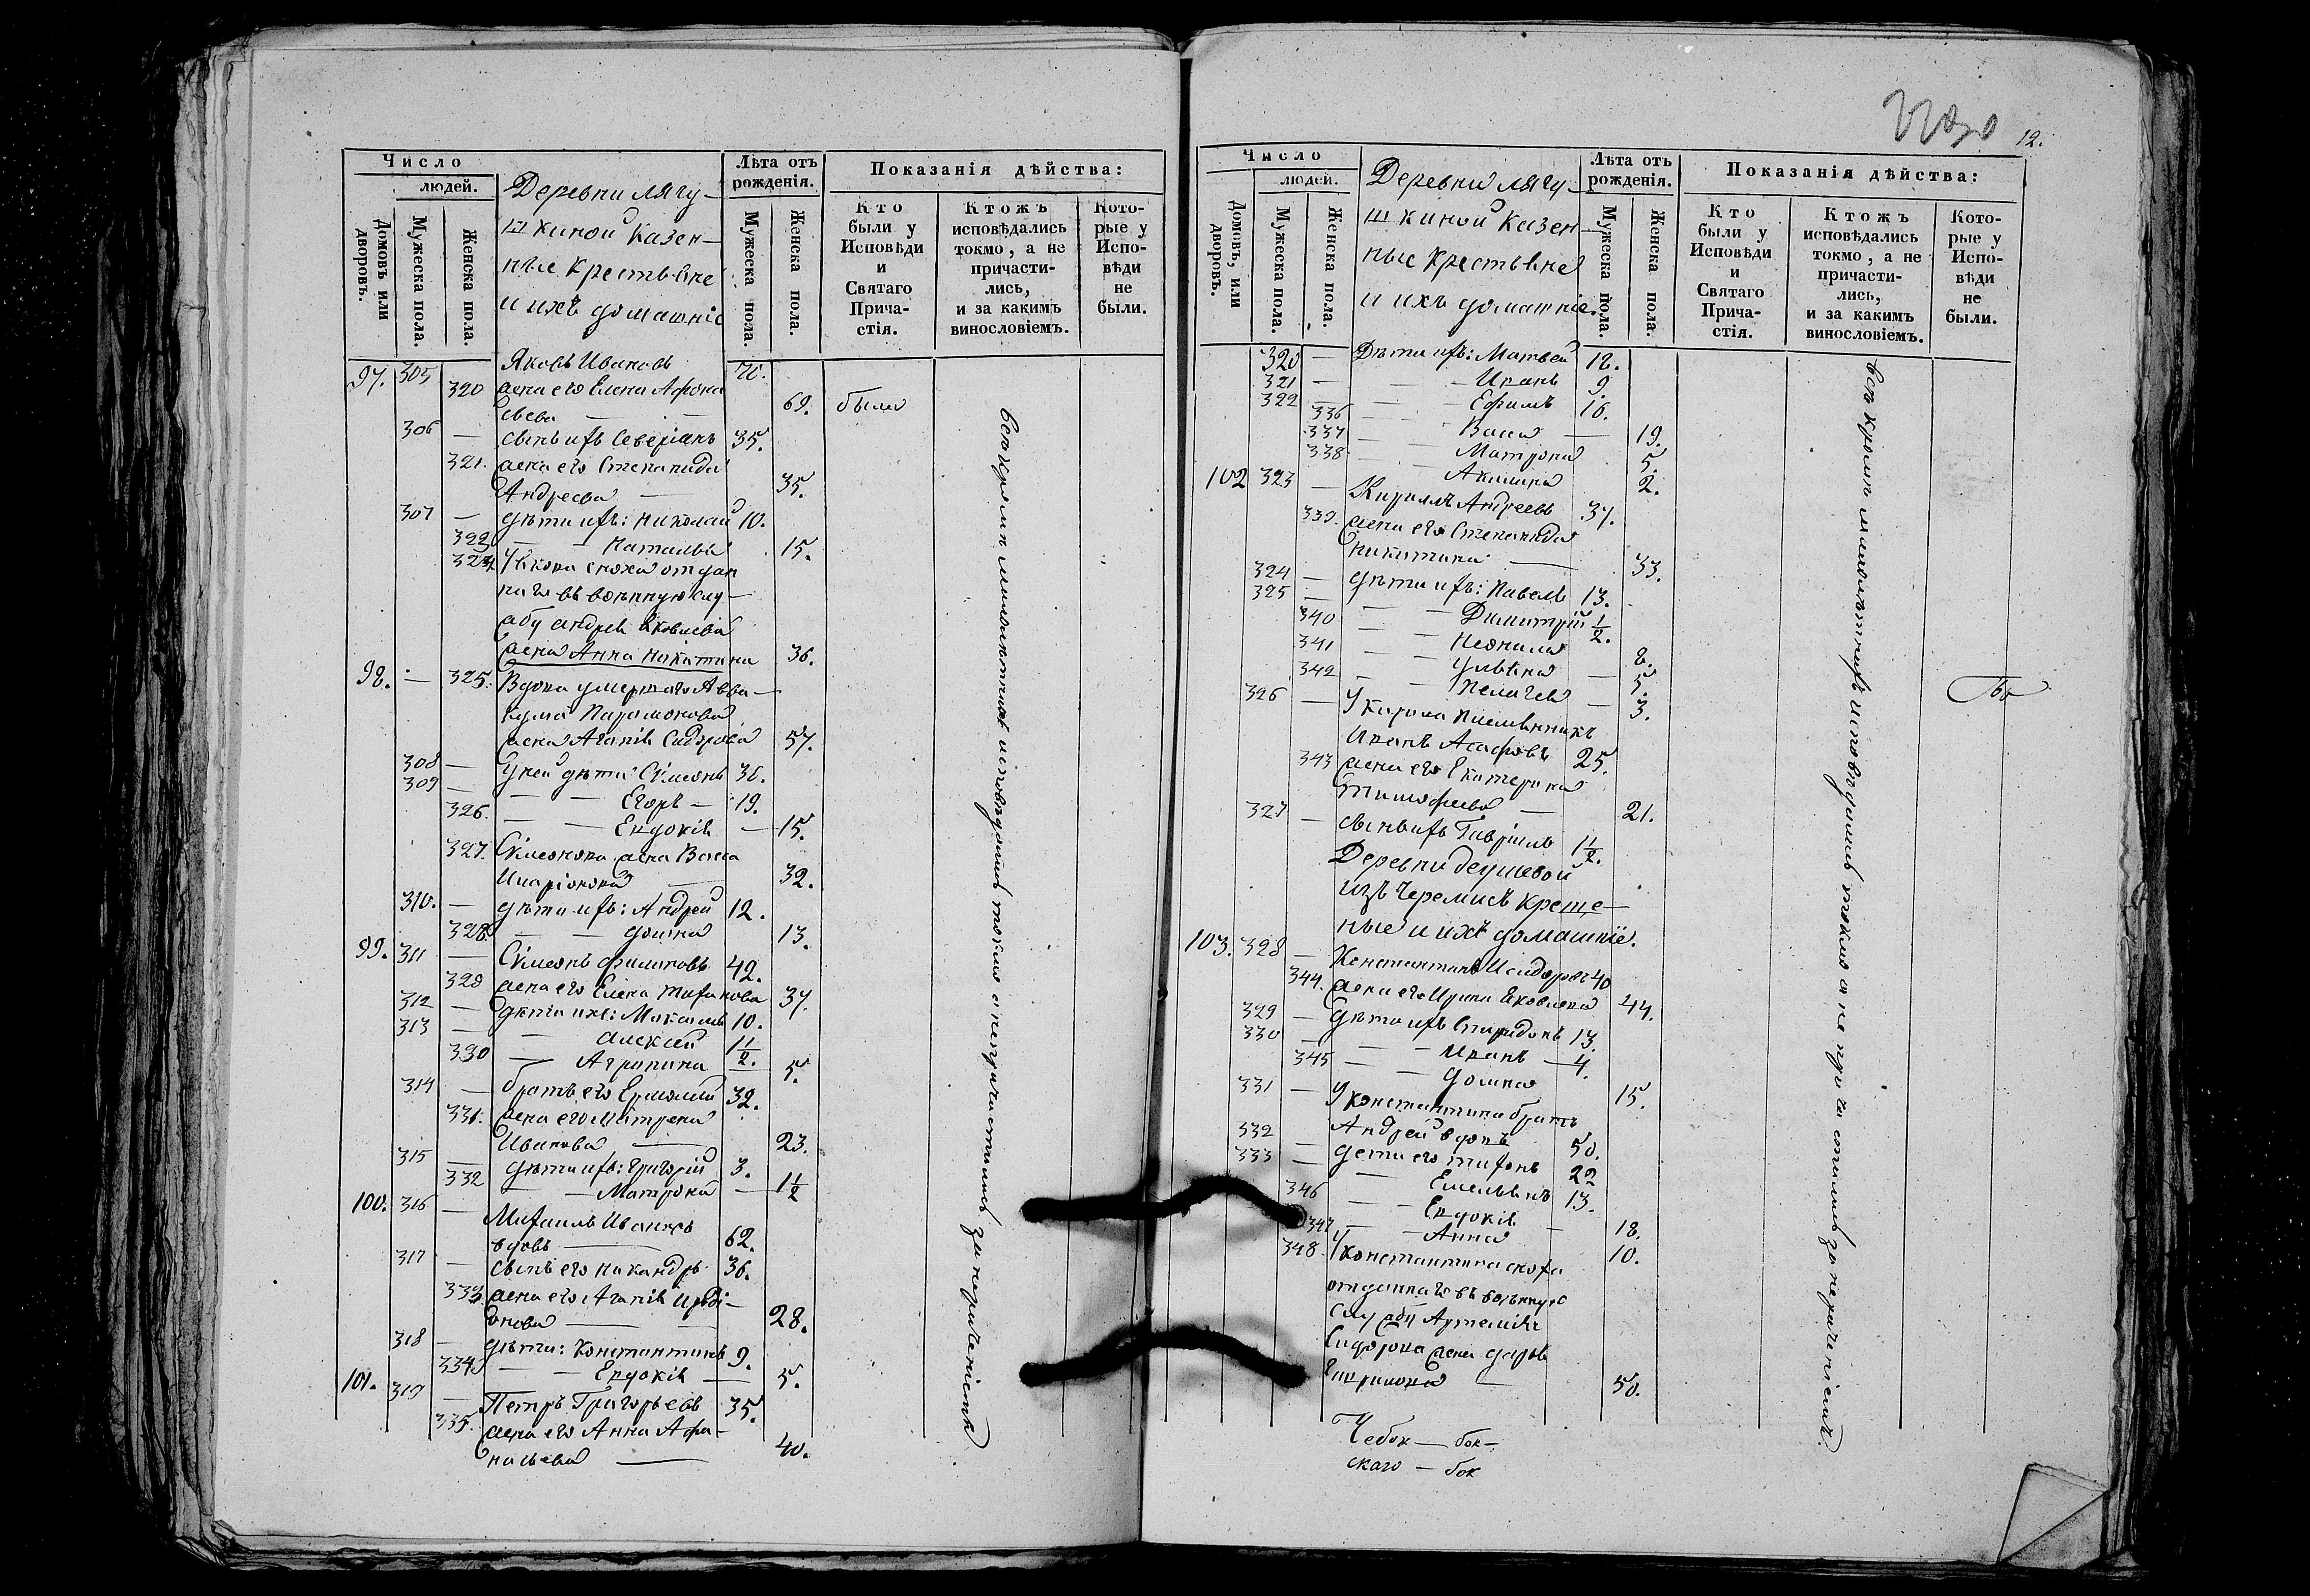 Число
людей.
Домовъ или дворовъ.
Мужеска пола.
Женска пола.
Деревни Лягу-
шкиной казен-
ные крестьяне
и ихъ домашніе
Лѣта отъ рожденія.
Мужеска пола.
Женска пола.
Показанія дѣйства:
Кто были у Исповѣди и Святаго Прича-стія.
Ктожъ исповѣдались токмо, а не причасти-лись, и за какимъ винословіемъ.
Кото-рые у Испо-вѣди не были.
97. 305 Яковъ Ивановъ
320 жена его Елена Афона
сьева 69. были
306 — сынъ ихъ Северіанъ 35.
321. жена его Степанида
Андреева — 35.
307 — дѣти ихъ: Николай 10.
322 — — Наталья 15.
У Якова сноха отдан
наго въ военную слу-
жбу Андрея Яковлева
жена Анна Никитина 36.
98. — 325. Вдова умершаго Авва-
кума Парамонова
жена Агапія Сидорова 57.
308 — у ней дѣти Симеонъ 36.
309 — — — Егоръ — 19.
326. — — Евдокія — 15.
327. Симеонова жена Васса
Иларіонова — 32.
310. — дѣти ихъ: Андрей 12.
328. — — Домна 13.
99. 311 — Симеонъ Филиповъ 42.
329 жена его Елена Тихонова 37.
312 — дѣти ихъ: Максимъ 10.
313 — — Алексей 1 1/2.
330 — Агрипина 5.
314 — братъ его Ермолай 32.
331. жена его Матрена
Иванова — 23.
315 — дѣти ихъ: Григорій 3.
332 — — Матрона — 1 1/2
100. 316 — Михаилъ Ивановъ
вдовъ — 62.
317 — сынъ его Никандръ 36.
333 жена его Агапія Ироді-
онова — 28.
318 — дѣти: Константинъ 9.
334 — — Евдокія — 5.
101. 319 — Петръ Григорьевъ 35.
335. жена его Анна Афа-
насьева — 40.
всѣ кромѣ малолѣтнихъ исповѣдались токмо а непричастились за нераченіемъ
12.
Число
людей.
Домовъ, или дворовъ.
Мужеска пола.
Женска пола.
Деревни Лягу-
шкиной казен-
ные крестьяне
и ихъ домашніе.
Лѣта отъ рожденія.
Мужеска пола.
Женска пола.
Показанія дѣйства:
Кто были у Исповѣди и Святаго Прича-стія.
Ктожъ исповѣдались токмо, а не причасти-лись, и за какимъ винословіемъ.
Кото-рые у Испо-вѣди не были.
320 — Дѣти ихъ: Матвей 12.
321 — — — Иванъ 9.
322 — — — Ефимъ 16.
336 — — Васса — 19.
337 — — Матрона 5.
338 — — Акилина 2.
102 323 — Кирилъ Андреевъ 37.
339. жена его Степанида
Никитина — 33.
324 — дѣти ихъ: Павелъ 13.
325 — — — Димитрій 1/2.
340 — — Неонила 8.
341 — — Ульяна — 5.
342 — — Пелагея — 3.
326 — У Кирила племянникъ
Иванъ Агафовъ 25.
343 жена его Екатерина
Тимофеева — 21.
327 — сынъ ихъ Гавріилъ 1 1/2.
Деревни
изъ Черемисъ креще-
ные и ихъ домашніе.
103. 328 — Константинъ Исидоровъ 40
344. жена его Ирина Яковлева 44.
329 — Дѣти ихъ Спиридонъ 13.
330 — — — Иванъ — 4.
345 — — Домна 15.
331 — У Константина братъ
Андрей вдовъ 50.
332 — дети его Тихонъ 22
333 — — Емельянъ 13.
346 — — Евдокія — 18.
347 — — Анна 10.
348. У Константина сноха
отданнаго въ военную
службу Артемія
Сидорова жена Дарья
Кирилова — 50.
всѣ кромѣ малолѣтнихъ исповѣдались токмо а не причастились за нераченіемъ.
Чебок — бок-
скаго — бок